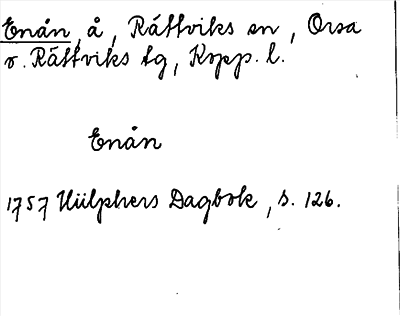 Enån, å, Rättviks sn, Orsa
o. Rättviks tg, Kopp. l.
Enån
1757 Hülphers Dagbok, s. 126.